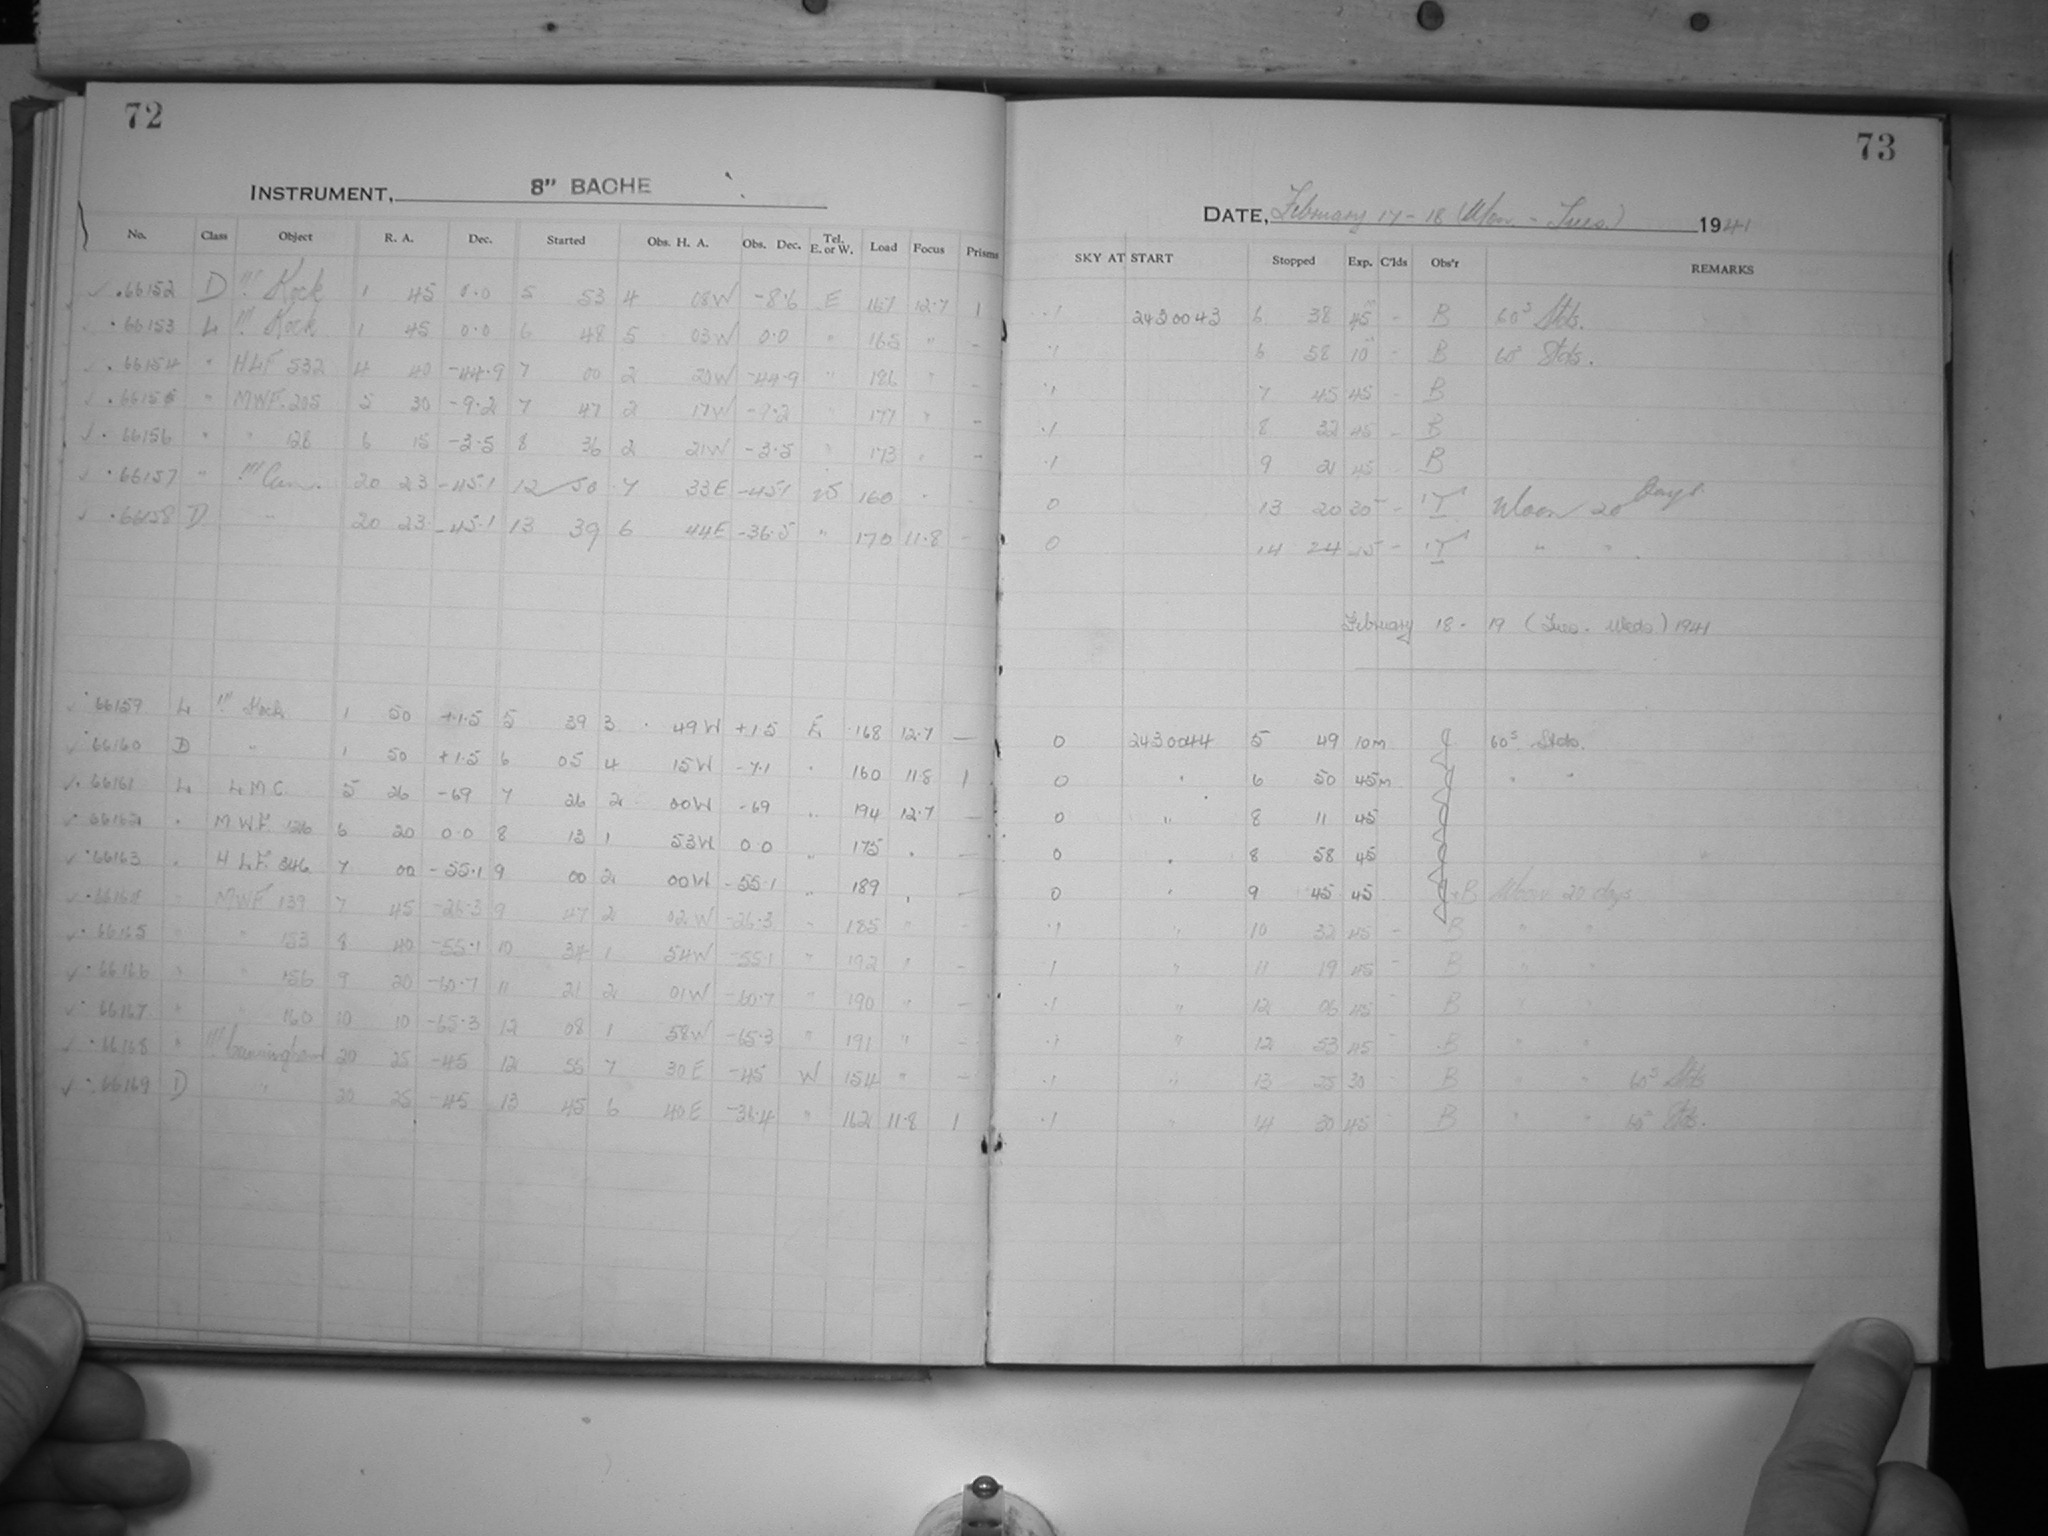 72
INSTRUMENT, 8" BACHE
No. Class Object R. A. Dec. Started Obs. H. A. Obs. Dec. Tel. E. or W. Load Focus Prisms
66152 D !!! Kock 1 45 0.0 5 53 4 08W -8.6 E 167 12.7 1
66153 L !!! Kock 1 45 0.0 6 48 5 03W 0.0 " 165 " -
66154 " HLF 532 4 40 -44.9 7 00 2 20W -44.9 " 186 " -
66155 " MWF. 205 5 30 -9.2 7 47 2 17W -9.2 " 177 " -
66156 " " 128 6 15 -3.5 8 36 2 21W -3.5 " 173 " -
66157 " !!! Cun. 20 23 -45.1 12 50 7 33E -45.1 W 160 " -
66158 D " 20 23 -45.1 13 39 6 44E -36.5 " 170 11.8 -
66159 L !!! Kock 1 50 +1.5 5 39 3 49W +1.5 E 168 12.7 -
66160 D " 1 50 +1.5 6 05 4 15W -7.1 " 160 11.8 1
66161 L L.M.C. 5 26 -69 7 26 2 00W -69 " 194 12.7 -
66162 " M.W.F. 126 6 20 0.0 8 13 1 53W 0.0 " 175 " -
66163 " H.L.F. 346 7 00 -55.1 9 00 2 00W -55.1 " 189 " -
66164 " MWF 139 7 45 -26.3 9 47 2 02W -26.3 " 185 " -
66165 " " 153 8 40 -55.1 10 34 1 54W -55.1 " 192 " -
66166 " " 156 9 20 -60.7 11 21 2 01W -60.7 " 190 " -
66167 " " 160 10 10 -65.3 12 08 1 58W -65.3 " 191 " -
66168 " !!! Cunningham 20 25 -45 12 55 7 30E -45 W 154 " -
66169 D " 20 25 -45 13 45 6 40E -36.4 " 162 11.8 1
73
DATE, February 17-18 (Mon. - Tues.) 1941
SKY AT START Stopped Exp. C'lds Obs'r REMARKS
.1 2430043 6 38 45m - B 60s Stds.
.1 6 58 10m - B 60s Stds.
.1 7 45 45 - B
.1 8 32 45 - B
.1 9 21 45 - B
0 13 20 30 - T Moon 20 Days
0 14 24 45 - T " "
February 18-19 (Tues. Weds.) 1941
0 2430044 5 49 10m 60s Stds.
0 " 6 50 45m " "
0 " 8 11 45
0 " 8 58 45
0 " 9 45 45 +B Moon 20 days
.1 " 10 32 45 - B " "
.1 " 11 19 45 - B " "
.1 " 12 06 45 - B " "
.1 " 12 53 45 - B " "
.1 " 13 25 30 - B " " 60s Stds
.1 " 14 30 45 B " " 60s Stds.